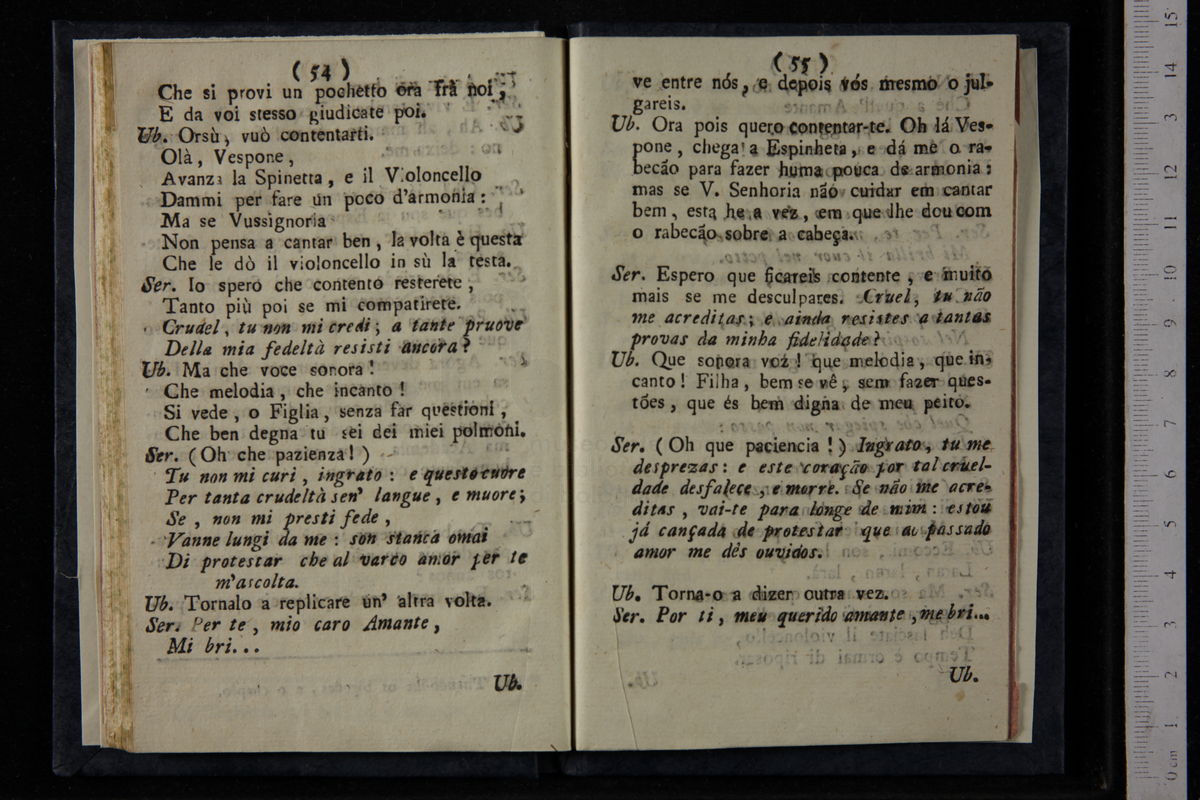 (54)
Che si provi un pochetto ora frà noi,
E da voi stesso giudicate poi.
Ub. Orsù, vuò contentarti.
Olà, Vespone,
Avanza la Spinetta, e il Violoncello
Dammi per fare un poco d'armonia:
Ma se Vussignoria
Non pensa a cantar ben, la volta è questa
Che le dò il violoncello in sù la testa.
Ser. Io spero che contento resterete,
Tanto più poi se mi compatirete.
Crudel, tu non mi credi; a tante pruove
Della mia fedeltà resisti ancora?
Ub. Ma che voce sonora!
Che melodia, che incanto!
Si vede, o Figlia, senza far questioni,
Che ben degna tu sei dei miei polmoni.
Ser. (Oh che pazienza!)
Tu non mi curi, ingrato: e questo cuore
Per tanta crudeltà sen' langue, e muore;
Se, non mi presti fede,
Vanne lungi da me: son stanca omai
Di protestar che al varco amor per te
m'ascolta.
Ub. Tornalo a replicare un' altra volta.
Ser. Per te, mio caro Amante,
Mi bri...
Ub.
(55)
ve entre nós, e depois vós mesmo o jul-
gareis.
Ub. Ora pois quero contentar-te. Oh lá Ves-
pone, chega a Espinheta, e dá me o ra-
becão para fazer huma pouca de armonia:
mas se V. Senhoria não cuidar em cantar
bem, esta he a vez, em que lhe dou com
o rabecão sobre a cabeça.
Ser. Espero que ficareis contente, e muito
mais se me desculpares. Cruel, tu não
me acreditas; e ainda resistes a tantas
provas da minha fidelidade?
Ub. Que sonora voz! que melodia, que in-
canto! Filha, bem se vê, sem fazer ques-
tões, que és bem digna de meu peito.
Ser. (Oh que paciencia!) Ingrato, tu me
desprezas: e este coração por tal cruel-
dade desfalece, e morre. Se não me acre-
ditas, vai-te para longe de mim: estou
já cançada de protestar que ao passado
amor me dês ouvidos.
Ub. Torna-o a dizer outra vez.
Ser. Por ti, meu querido amante, me bri...
Ub.